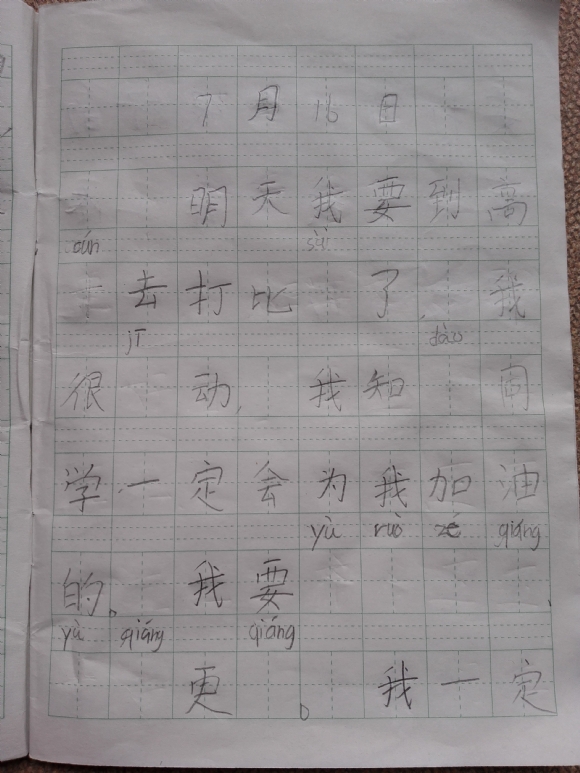 7月16日
明天我要到
sài
去打比了,我
jī dào
很动,我知同
学一定会为我加油
yù ruò zé qiáng
的。我要
yù qiáng qiáng
更。我一定